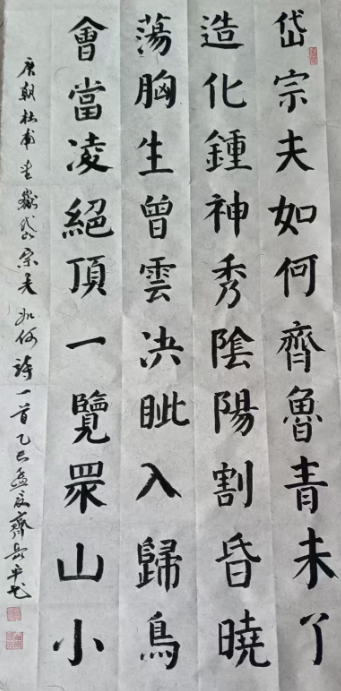 岱宗夫如何齊魯青未了
造化鍾神秀陰陽割昏曉
蕩胸生曾雲決眦入歸鳥
會當凌絕頂一覽眾山小
唐朝杜甫 岱宗夫如何詩一首乙巳孟夏齊